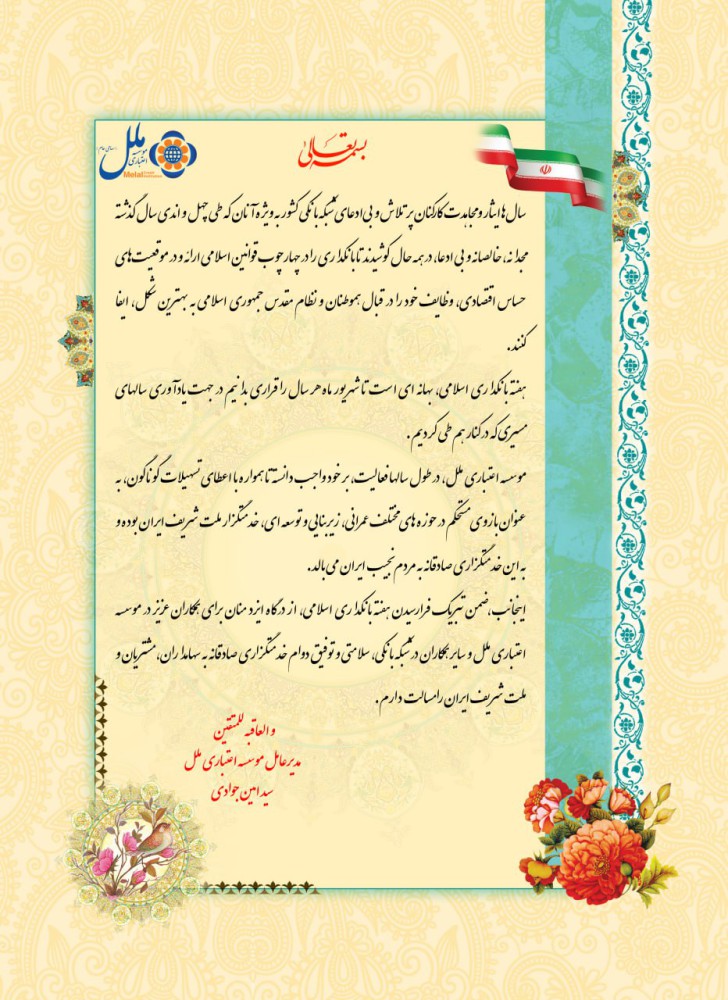 بسمه تعالی
موسسه اعتباری ملل
Melal
سال ها ایثار و مجاهدت کارکنان پر تلاش و بی ادعای شبکه بانکی کشور به ویژه آنان که طی چهل و اندی سال گذشته
مجدانه، خالصانه و بی ادعا، در همه حال کوشیدند تا بانکداری را در چهارچوب قوانین اسلامی ارائه و در موقعیت های
حساس اقتصادی، وظایف خود را در قبال هموطنان و نظام مقدس جمهوری اسلامی به بهترین شکل، ایفا
کنند.
هفته بانکداری اسلامی، بهانه ای است تا شهریور ماه هر سال را قراری بدانیم در جهت یادآوری سالهای
مسیری که در کنار هم طی کردیم.
موسسه اعتباری ملل، در طول سالها فعالیت، بر خود واجب دانسته تا همواره با اعطای تسهیلات گوناگون، به
عنوان بازوی مستحکم در حوزه های مختلف عمرانی، زیربنایی و توسعه ای، خدمتگزار ملت شریف ایران بوده و
به این خدمتگزاری صادقانه به مردم نجیب ایران می بالد.
اینجانب، ضمن تبریک فرارسیدن هفته بانکداری اسلامی، از درگاه ایزد منان برای همکاران عزیز در موسسه
اعتباری ملل و سایر همکاران در شبکه بانکی، سلامتی و توفیق دوام خدمتگزاری صادقانه به سهامداران، مشتریان و
ملت شریف ایران را مسالت دارم.
و العاقبه للمتقین
مدیرعامل موسسه اعتباری ملل
سید امین جوادی